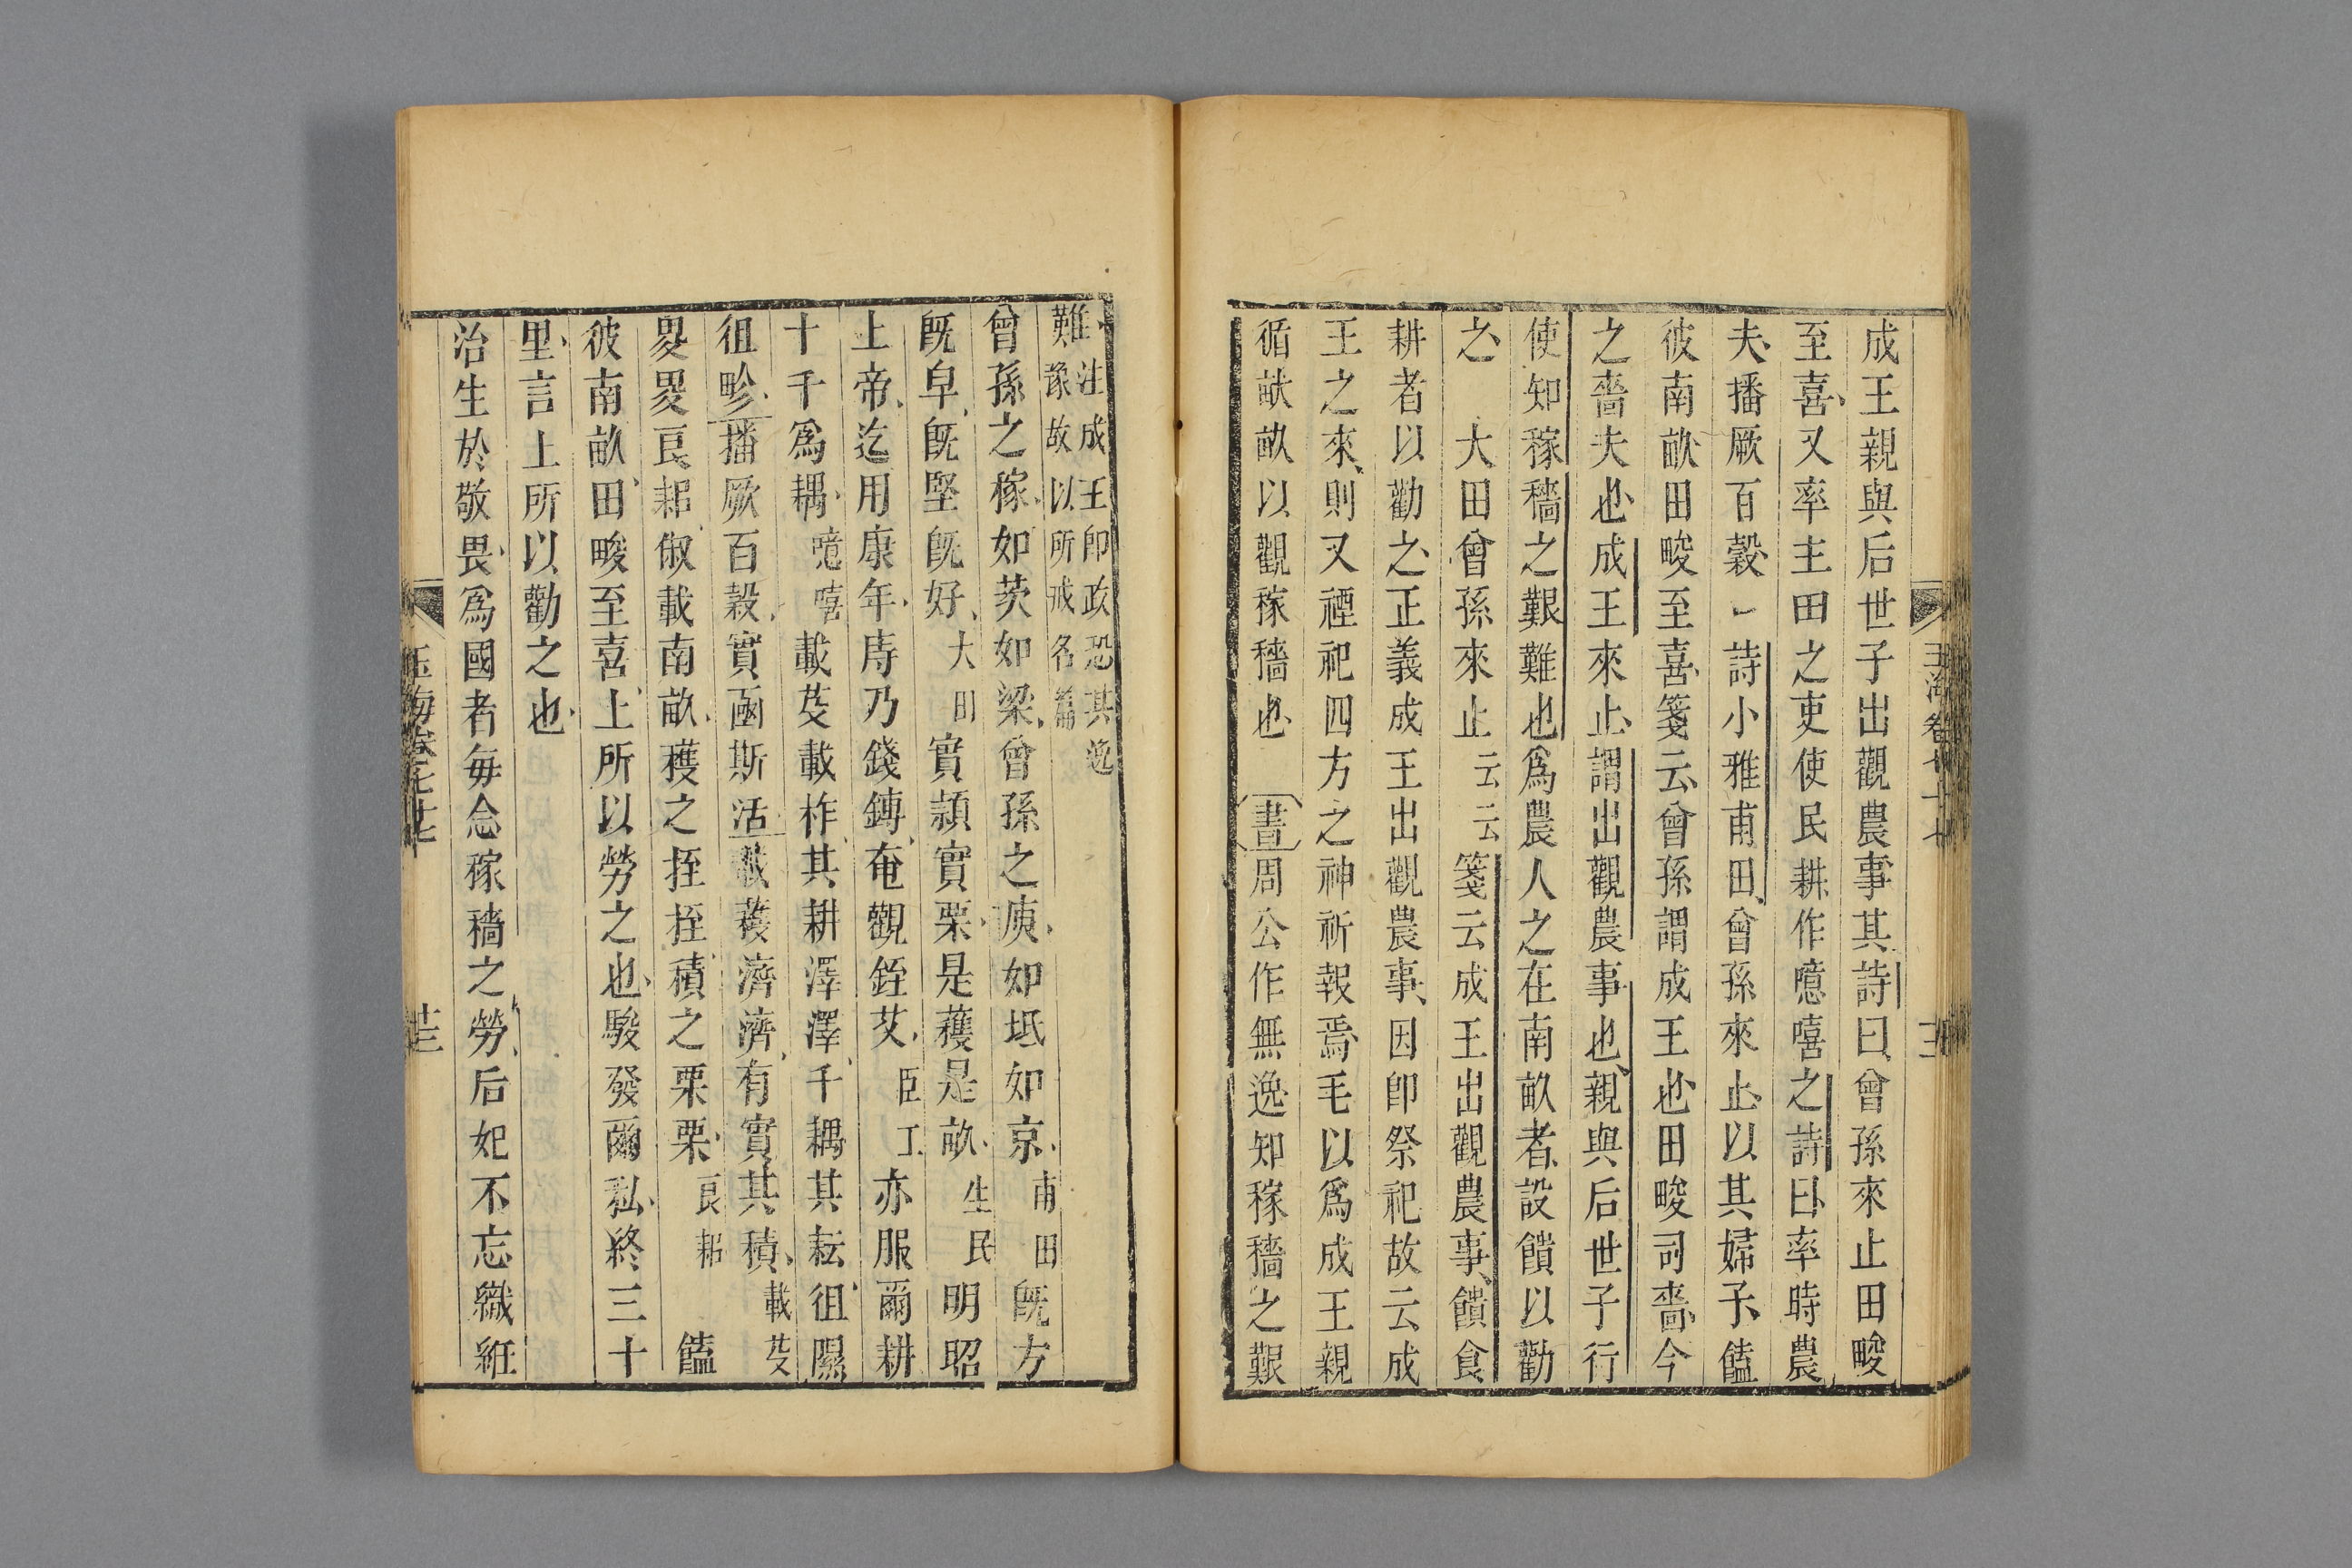 成王親與后世子出觀農事其詩曰曾孫來止田畯
至喜又率主田之吏使民耕作噫嘻之詩曰率時農
夫播厥百穀 詩小雅甫田曾孫來止以其婦子饁
彼南畝田畯至喜箋云曾孫謂成王也田畯司嗇今
之嗇夫也成王來止謂出觀農事也親與后世子行
使知稼穡之艱難也為農人之在南畝者設饋以勸
之 大田曾孫來止云云箋云成王出觀農事饋食
耕者以勸之正義成王出觀農事因卽祭祀故云成
王之來則又禋祀四方之神祈報焉毛以爲成王親
循畎畝以觀稼穡也 書周公作無逸知稼穡之艱
玉海卷七十七
難注成王卽政恐其逸豫故以所戒名篇
曾孫之稼如茨如梁曾孫之庾如坻如京甫田旣方
旣皁旣堅旣好大田實穎實栗是穫是畝生民明昭
上帝迄用康年庤乃錢鎛奄觀銍艾臣工亦服爾耕
十千爲耦噫嘻載芟載柞其耕澤澤千耦其耘徂隰
徂畛播厥百穀實函斯活載穫濟濟有實其積載芟
畟畟良耜俶載南畝穫之挃挃積之栗栗良耜 饁
彼南畝田畯至喜上所以勞之也駿發爾私終三十
里言上所以勸之也
治生於敬畏爲國者每念稼穡之勞后妃不忘織絍
玉海卷七十七